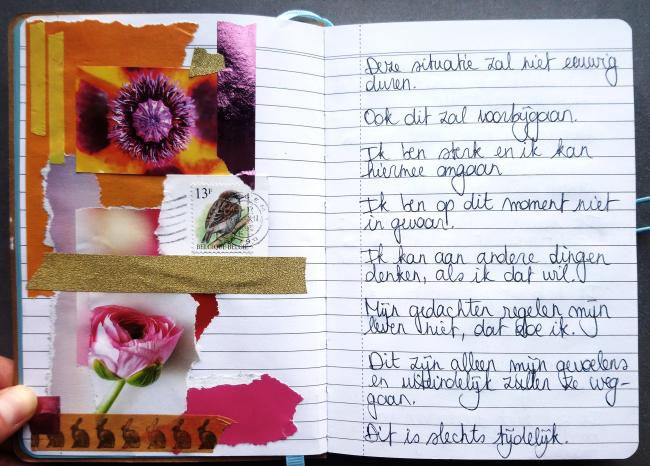 13F
BELGIQUE-BELGIË
Deze situatie zal niet eeuwig
duren.
Ook dit zal voorbijgaan.
Ik ben sterk en ik kan
hiermee omgaan.
Ik ben op dit moment niet
in gevaar.
Ik kan aan andere dingen
denken, als ik dat wil.
Mijn gedachten regelen mijn
leven niet, dat doe ik.
Dit zijn alleen mijn gevoelens
en uiteindelijk zullen ze weg-
gaan.
Dit is slechts tijdelijk.